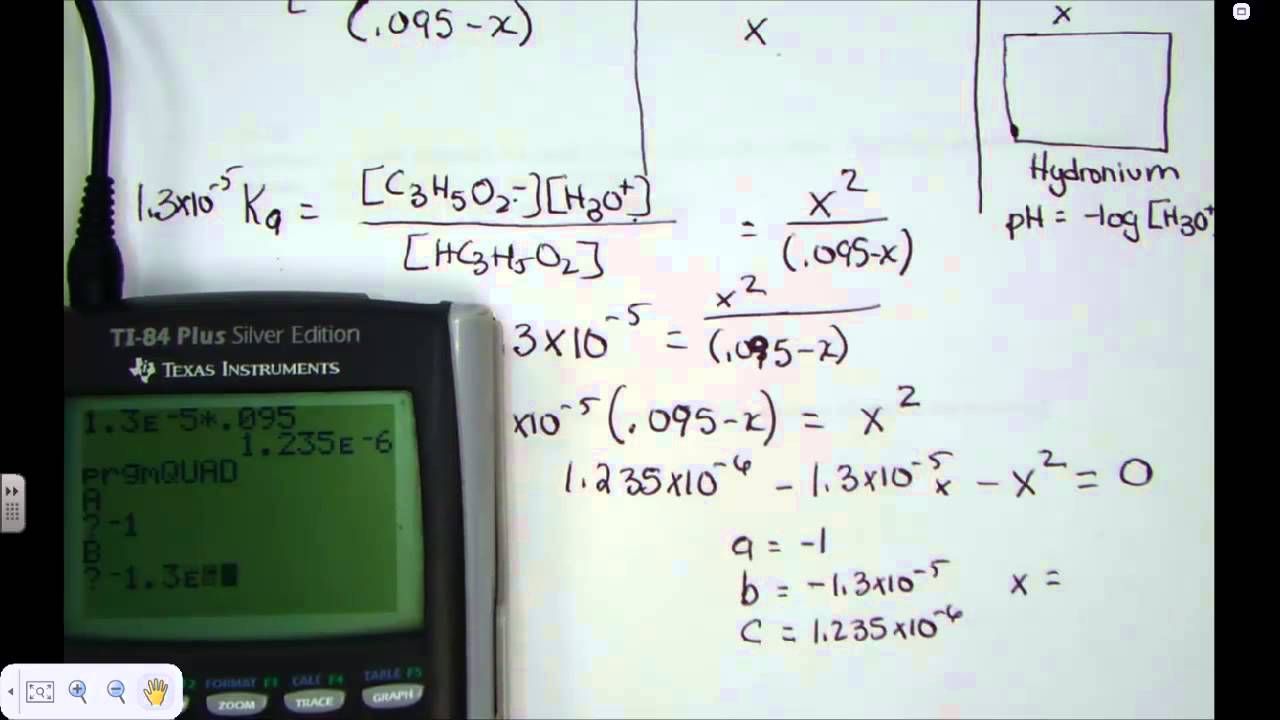 (.095-x)
x
x
Hydronium
pH = -log[H3O+
1.3x10^-5 Ka = [C3H5O2-][H3O+] / [HC3H5O2] = x^2 / (.095-x)
3x10^-5 = x^2 / (.095-x)
x10^-5 (.095-x) = x^2
1.235x10^-6 - 1.3x10^-5 x - x^2 = 0
a = -1
b = -1.3x10^-5
x =
c = 1.235x10^-6
TI-84 Plus Silver Edition
TEXAS INSTRUMENTS
1.3E-5*.095
1.235E-6
prgmQUAD
A
?-1
B
?-1.3E
F2 FORMAT F3 CALC F4 TABLE F5
ZOOM TRACE GRAPH